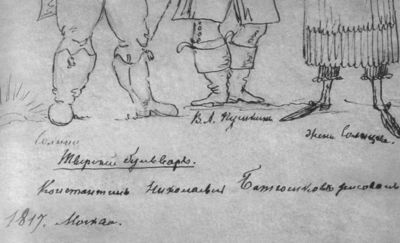 В. Л. Пушкин
жена Солнцева.
Солнцев
Тверский бульваръ.
Константинъ Николаевич Батюшковъ рисовалъ
1817. Москва.